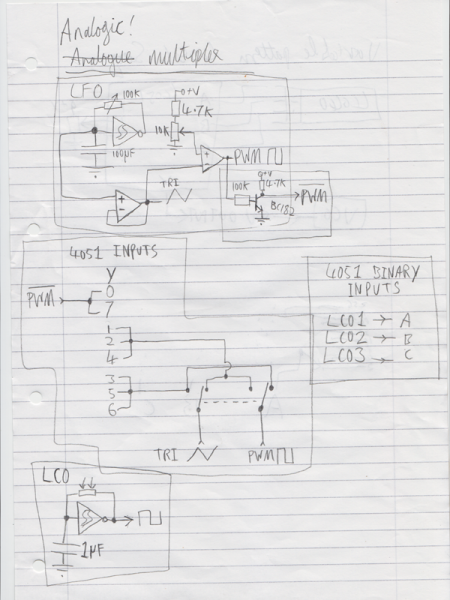 Analogic!
Analogue multiplex
LFO
100K
O+V
4.7K
10K
100µF
PWM
TRI
O+V
100K
4.7K
BC182
PWM
4051 INPUTS
Y
PWM
0
7
1
2
4
3
5
6
TRI
PWM
4051 BINARY
INPUTS
LCO1 → A
LCO2 → B
LCO3 → C
LCO
1µF